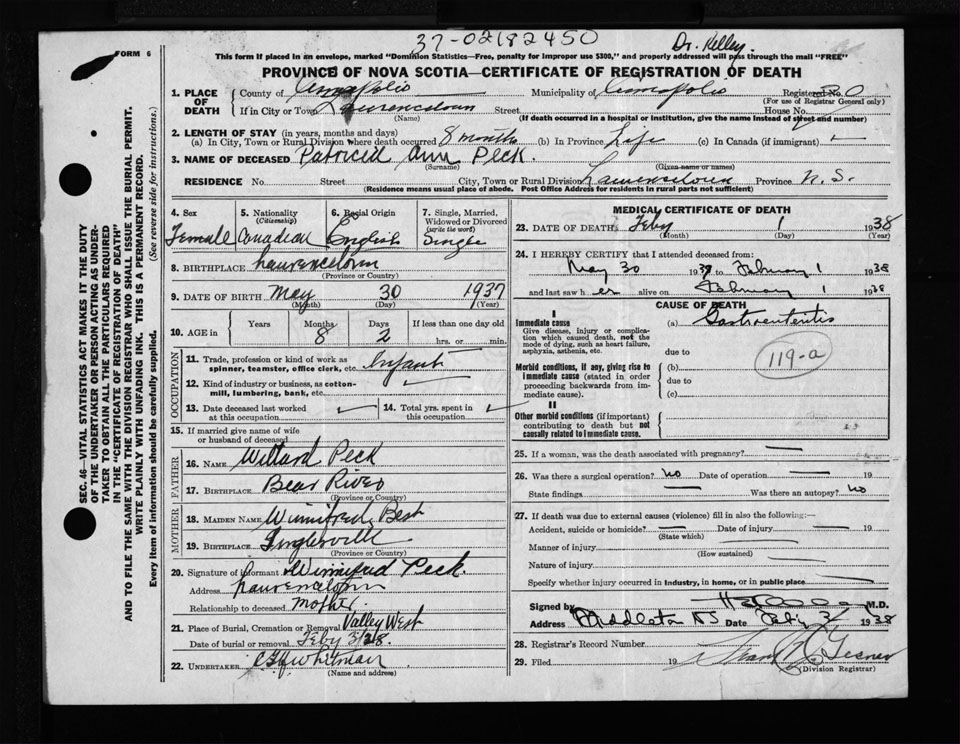 37-02182450
Dr. Kelley.
FORM 6
This form if placed in an envelope, marked "Dominion Statistics—Free, penalty for improper use $300," and properly addressed will pass through the mail "FREE"
PROVINCE OF NOVA SCOTIA—CERTIFICATE OF REGISTRATION OF DEATH
1. PLACE OF DEATH
County of Annapolis Municipality of Annapolis Registered No.
(For use of Registrar General only)
If in City or Town Lawrencetown Street House No.
(Name) (If death occurred in a hospital or institution, give the name instead of street and number)
2. LENGTH OF STAY (in years, months and days)
(a) In City, Town or Rural Division where death occurred 8 months (b) In Province Life (c) In Canada (if immigrant)
3. NAME OF DECEASED Patricia Ann Peck.
(Surname) (Given name or names)
RESIDENCE No. Street City, Town or Rural Division Lawrencetown Province N.S.
(Residence means usual place of abode. Post Office Address for residents in rural parts not sufficient)
4. Sex Female
5. Nationality (Citizenship) Canadian
6. Racial Origin English
7. Single, Married, Widowed or Divorced (write the word) Single
8. BIRTHPLACE Lawrencetown
(Province or Country)
9. DATE OF BIRTH May 30 1937
(Month) (Day) (Year)
10. AGE in Years Months 8 Days 2 If less than one day old hrs. or min.
OCCUPATION
11. Trade, profession or kind of work as spinner, teamster, office clerk, etc. Infant
12. Kind of industry or business, as cotton-mill, lumbering, bank, etc.
13. Date deceased last worked at this occupation
14. Total yrs. spent in this occupation
15. If married give name of wife or husband of deceased
FATHER
16. NAME Willard Peck
17. BIRTHPLACE Bear River
(Province or Country)
MOTHER
18. MAIDEN NAME Winnifred Best
19. BIRTHPLACE Inglisville
(Province or Country)
20. Signature of informant Winnifred Peck.
Address Lawrencetown
Relationship to deceased Mother.
21. Place of Burial, Cremation or Removal Valley West
Date of burial or removal Feby 3/38.
22. UNDERTAKER Whitman
(Name and address)
MEDICAL CERTIFICATE OF DEATH
23. DATE OF DEATH: Feby 1 1938
(Month) (Day) (Year)
24. I HEREBY CERTIFY that I attended deceased from:
May 30 1937 to February 1 1938
and last saw her alive on February 1 1938
CAUSE OF DEATH
I
Immediate cause
Give disease, injury or complication which caused death, not the mode of dying, such as heart failure, asphyxia, asthenia, etc.
(a) Gastroenteritis
due to
119-a
Morbid conditions, if any, giving rise to immediate cause (stated in order proceeding backwards from immediate cause).
(b)
due to
(c)
II
Other morbid conditions (if important) contributing to death but not causally related to immediate cause.
25. If a woman, was the death associated with pregnancy?
26. Was there a surgical operation? No Date of operation 19
State findings Was there an autopsy? No
27. If death was due to external causes (violence) fill in also the following:—
Accident, suicide or homicide? Date of injury 19
(State which)
Manner of injury
(How sustained)
Nature of injury
Specify whether injury occurred in industry, in home, or in public place
Signed by M.D.
Address Middleton NS Date Feby 3 1938
28. Registrar's Record Number
29. Filed 19 Gesner
(Division Registrar)
SEC. 46—VITAL STATISTICS ACT MAKES IT THE DUTY
OF THE UNDERTAKER OR PERSON ACTING AS UNDER-
TAKER TO OBTAIN ALL THE PARTICULARS REQUIRED
IN THE "CERTIFICATE OF REGISTRATION OF DEATH"
AND TO FILE THE SAME WITH THE DIVISION REGISTRAR WHO SHALL ISSUE THE BURIAL PERMIT.
WRITE PLAINLY WITH UNFADING INK. THIS IS A PERMANENT RECORD.
Every item of information should be carefully supplied. (See reverse side for instructions.)